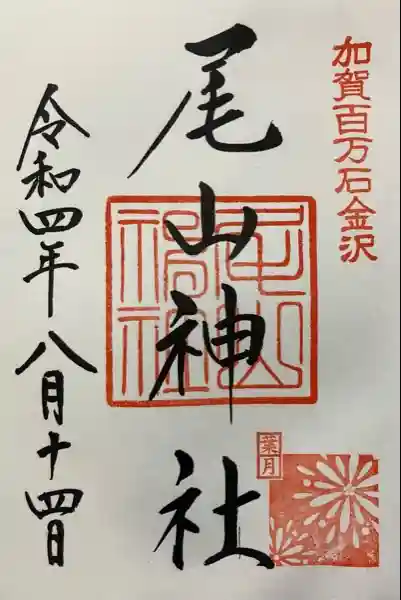 加賀百万石金沢
尾山神社
尾山神社
葉月
令和四年八月十四日